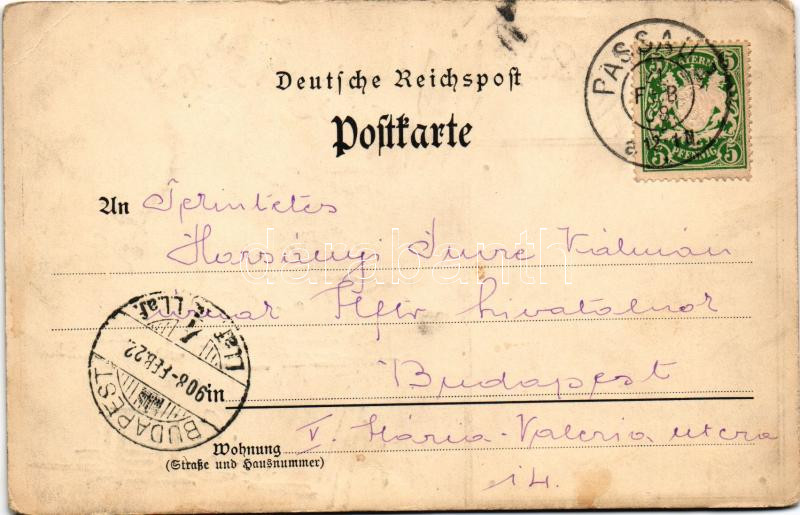 Deutsche Reichspost
Postkarte
PASSAU
FEB
BAYERN
5 5
5 PFENNIG 5
An Tekintetes
Harsányi Imre Kálmán
úrnak
hivatalnok
Budapest
in
BUDAPEST
908-FEB.22.
Wohnung
(Straße und Hausnummer)
V. Mária-Valeria utcza
14.
darabanth